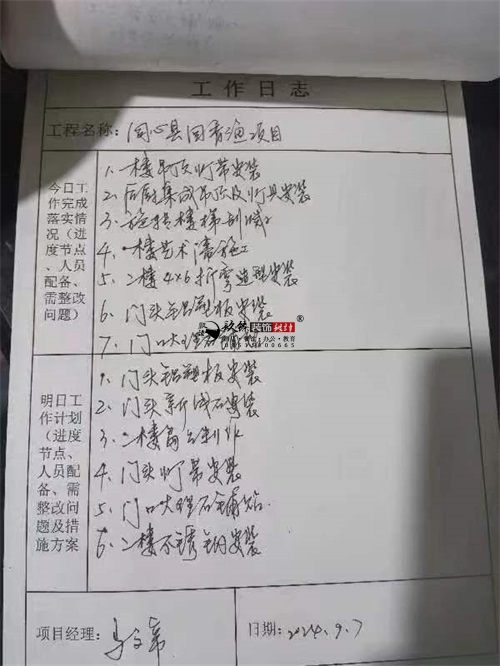 工作日志
工程名称: 同心县回香渔项目
今日工作完成落实情况（进度节点、人员配备、需整改问题）
1、一楼吊顶灯带安装
2、后厨集成吊顶及灯具安装
3、旋转楼梯
4、一楼艺术漆施工
5、二楼4×6折弯造型安装
6、门头铝塑板安装
7、门口大理石
装饰设计®
明日工作计划（进度节点、人员配备、需整改问题及措施方案
1、门头铝塑板安装
2、门头新域石安装
3、二楼
4、门头灯带安装
5、门口大理石铺贴
6、二楼不锈钢安装
项目经理:
日期: 2024.9.7